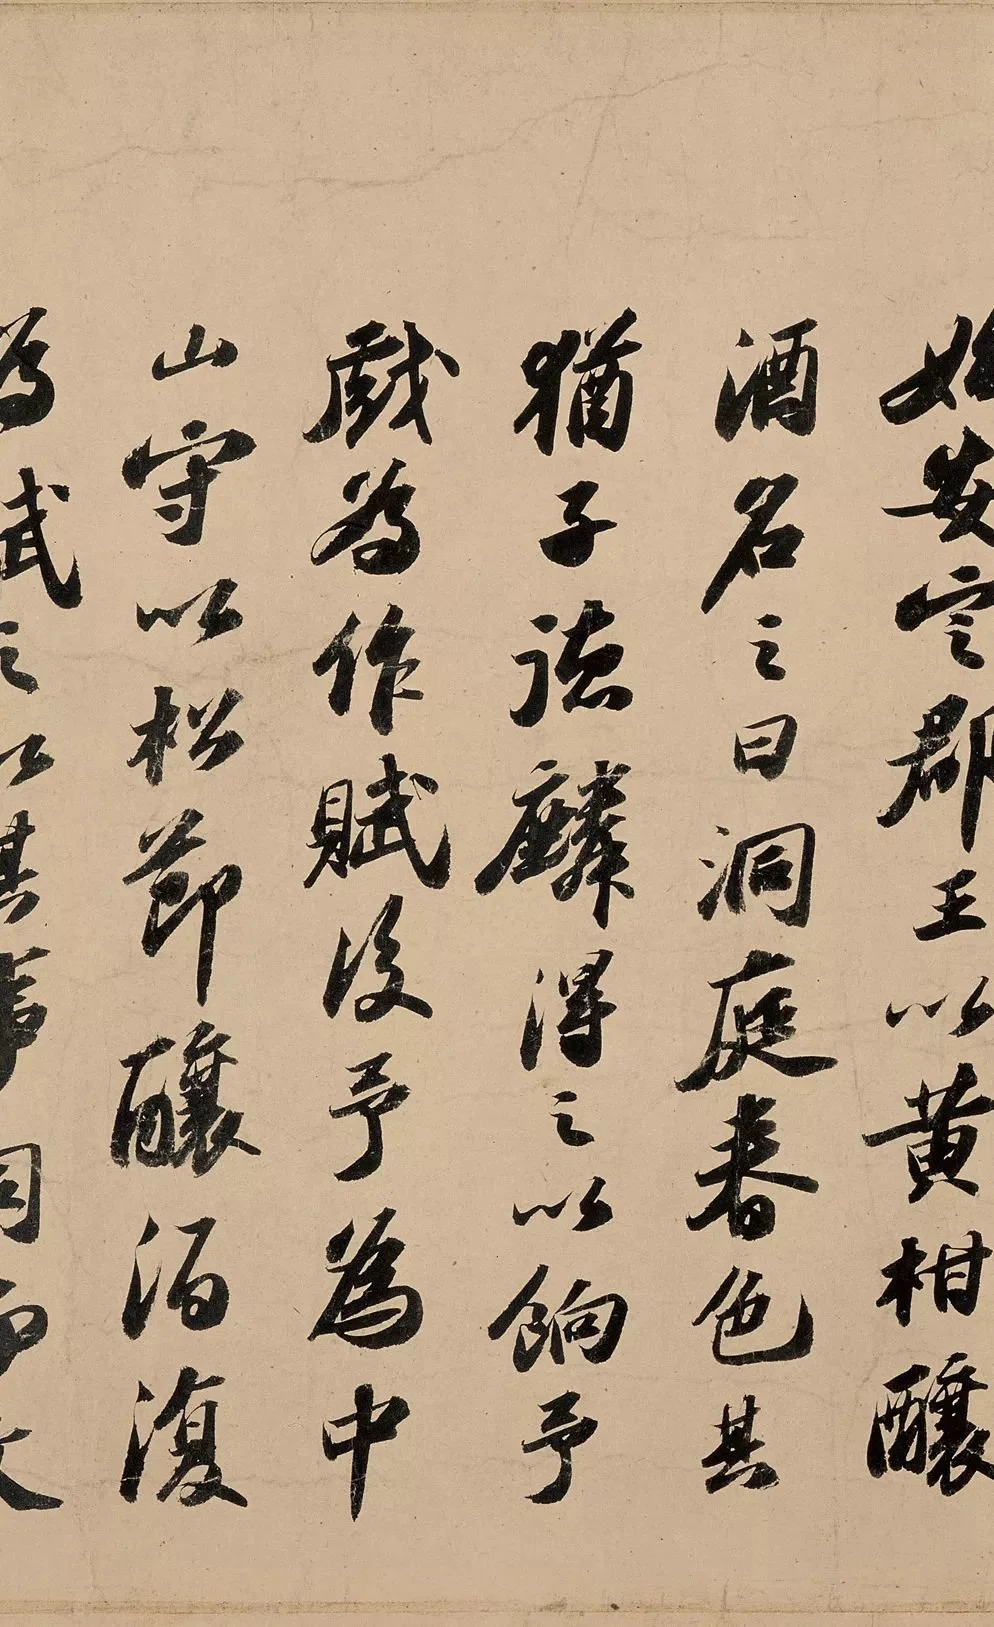 始安定郡王以黄柑釀
酒名之曰洞庭春色其
猶子德麟得之以餉予
戯為作賦後予為中
山守以松節釀酒復
為賦之以其事同而文